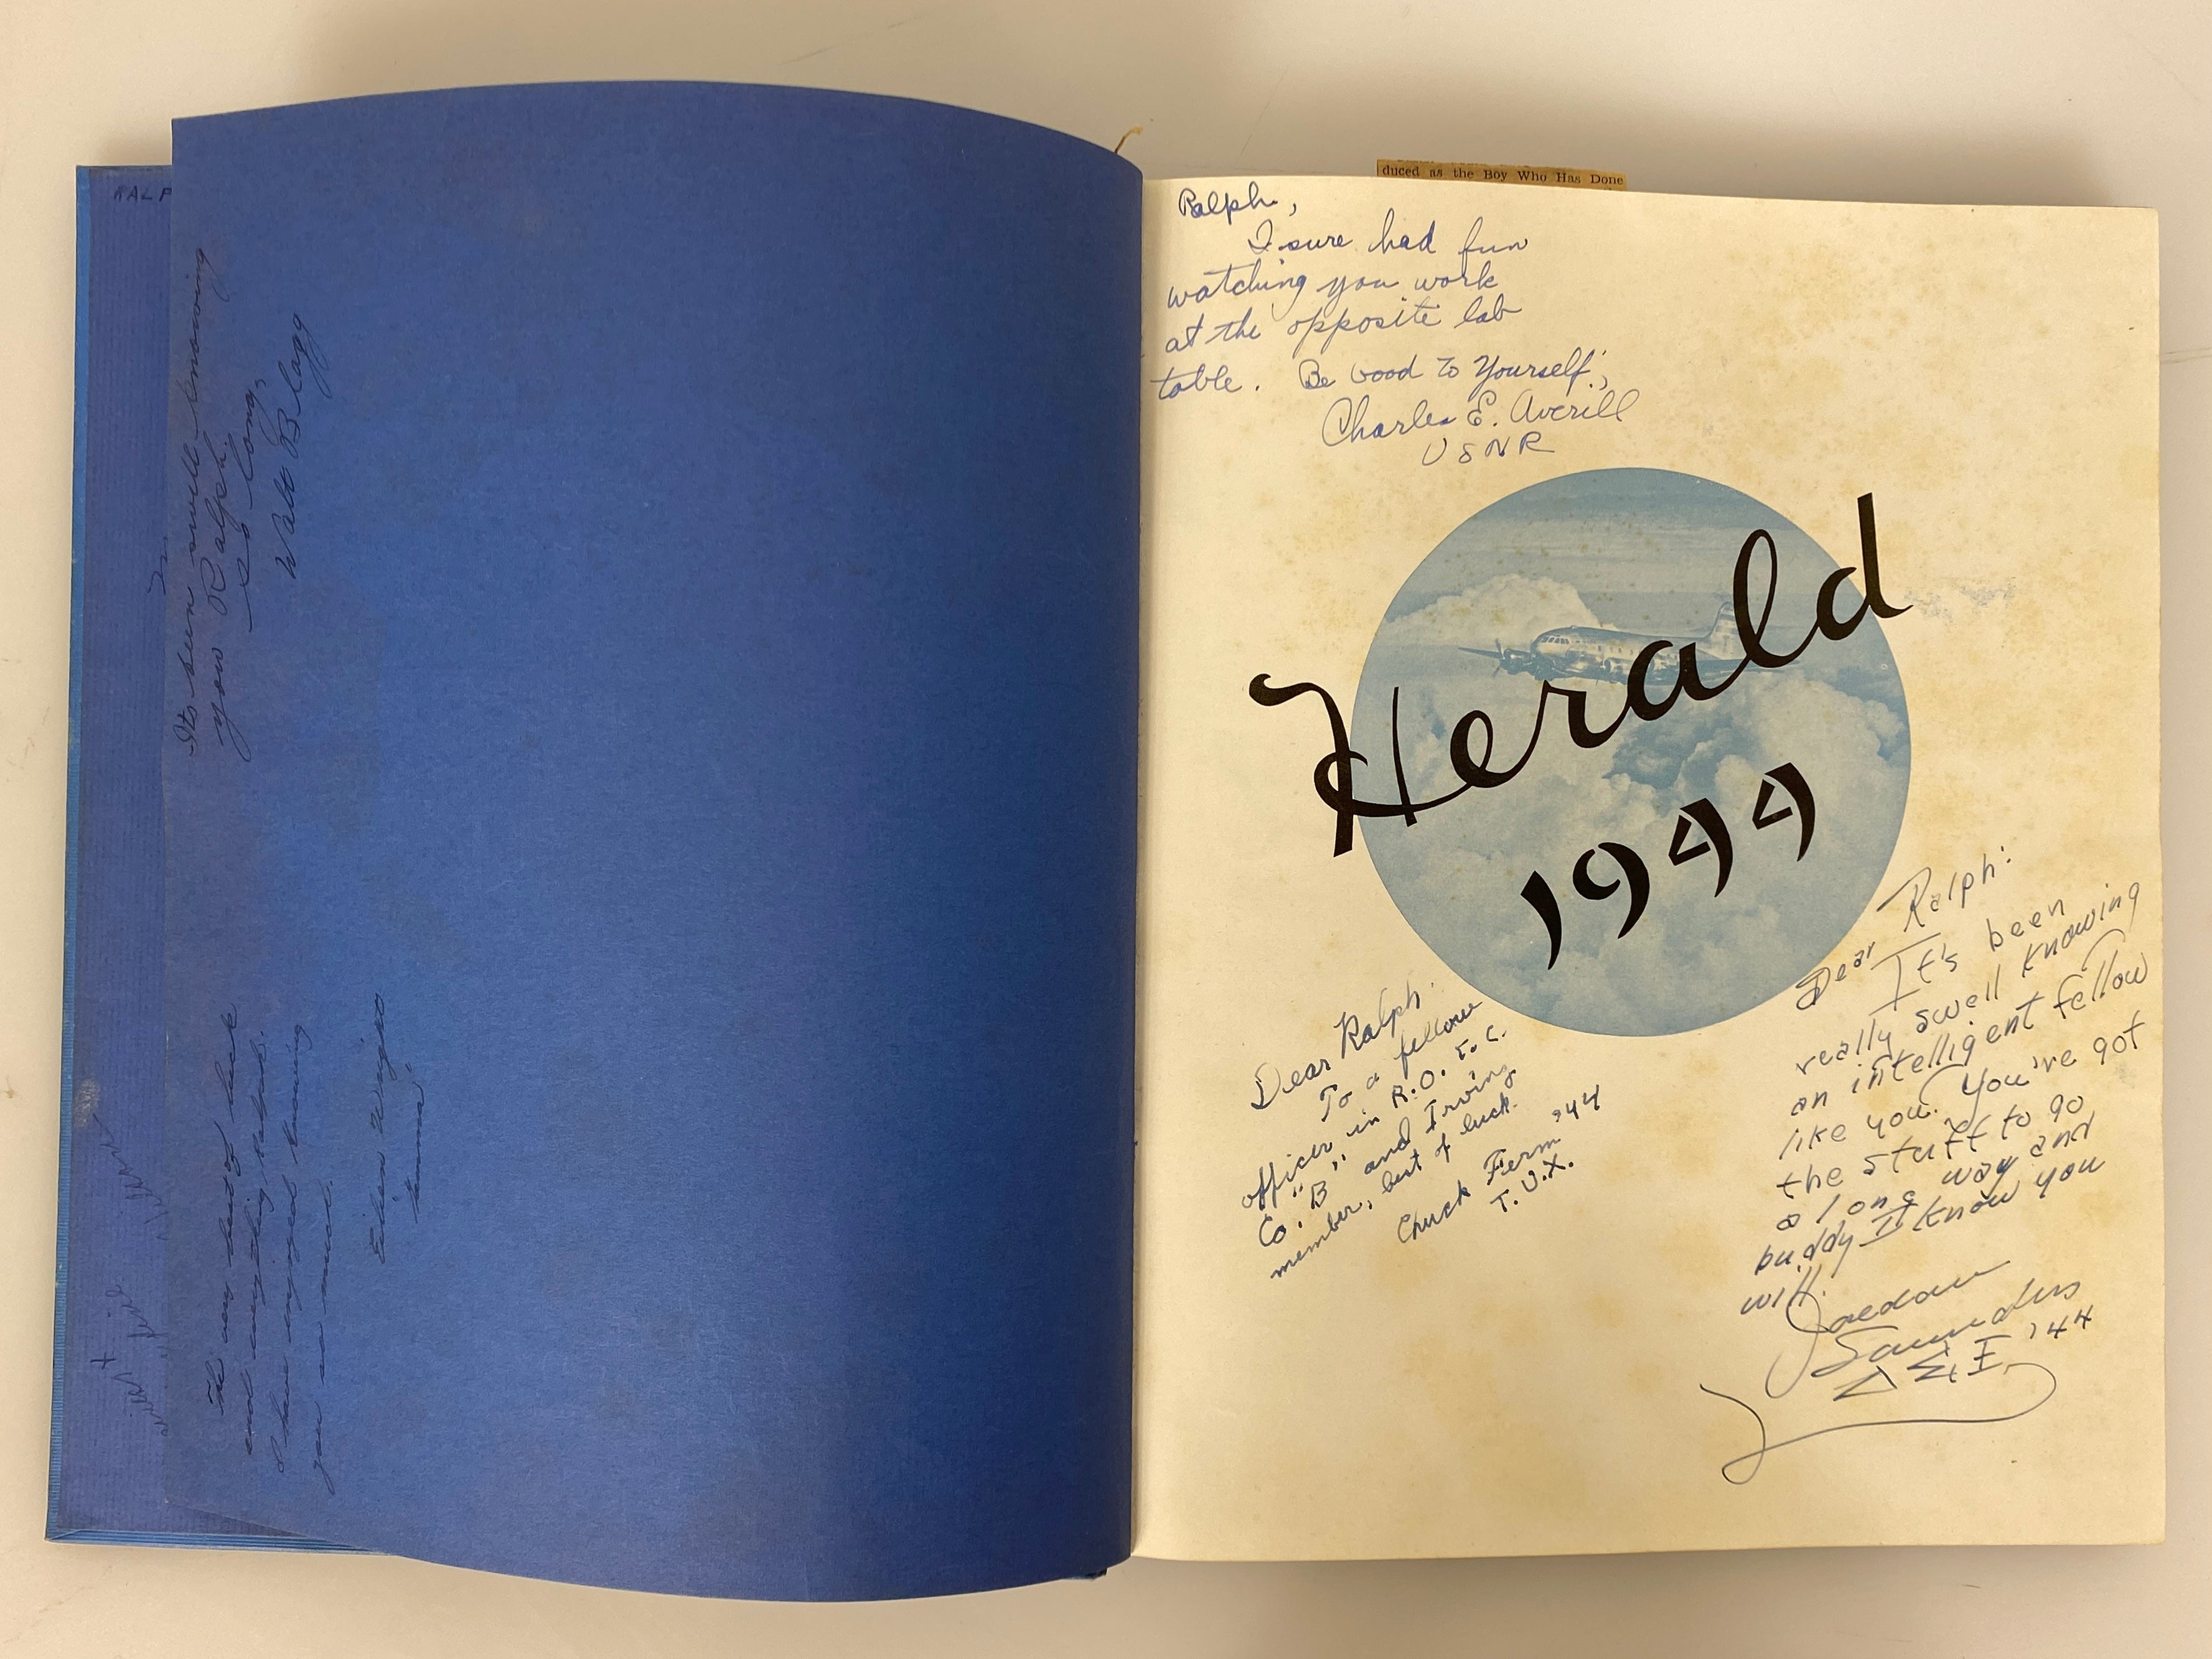 RALP
Its been swell knowing
you Ralph.
so long,
Walt Blagg
The very best of luck
and everything Ralph.
I have enjoyed knowing
you so much.
Eileen Wright
duced as the Boy Who Has Done
Ralph,
I sure had fun
watching you work
at the opposite lab
table. Be Good To Yourself,
Charles E. Averill
USNR
Herald
1944
Dear Ralph:
To a fellow
officer in R.O.T.C.
Co. "B" and Irving
member, best of luck.
Chuck Ferm '44
T.U.X.
Dear Ralph:
It's been
really swell knowing
an intelligent fellow
like you. You've got
the stuff to go
a long way and
buddy I know you
will.
Saunders
'44